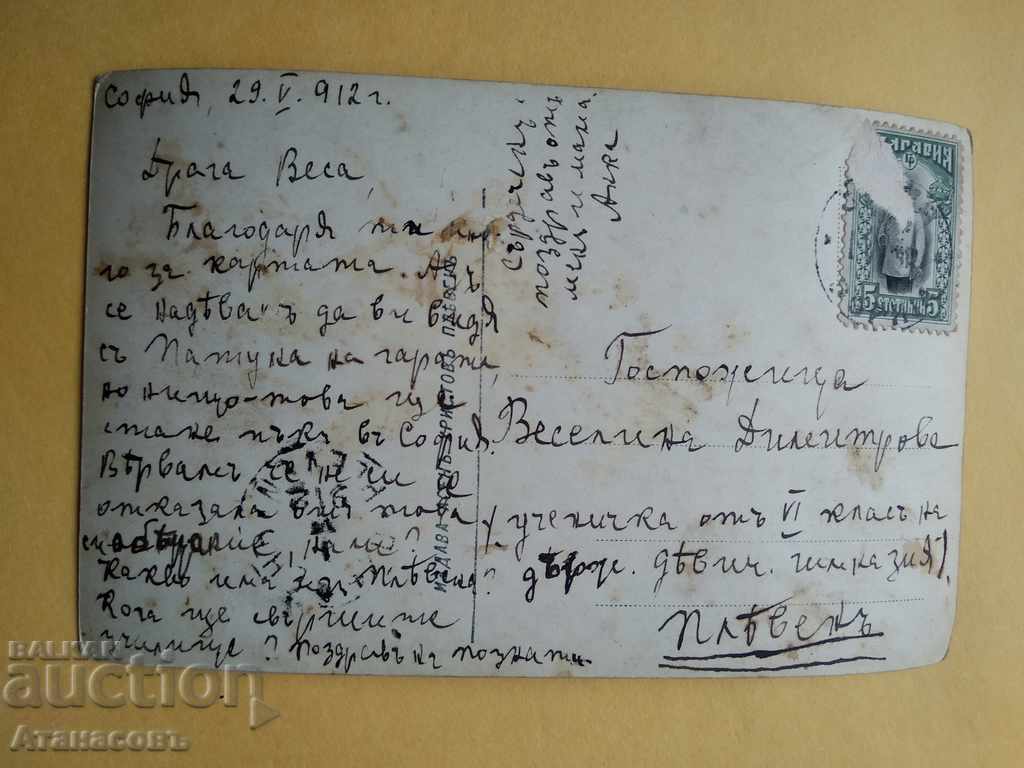 София, 29.V.912 г.
Драга Веса,
Благодаря ти
го за картата. Азъ
се надѣвахъ да ви видя
съ Патука на гарата,
но нищо-това ще
стане пъкъ въ София.
Вѣрвамъ, че не си
отказала отъ това
нали?
Какво има изъ Плѣвенъ?
Кога ще свършите
училище? Поздравъ на познати.
Сърдеченъ
поздравъ отъ
менъ и мама.
Анка
БЪЛГАРИЯ
5 СТОТИНКИ 5
Госпожица
Веселина Димитрова
(ученичка отъ VI класъ на
държ. дѣвич. гимназия).
Плѣвенъ
ИЗДАВА ХРИСТОВЪ ПЛѢВЕНЪ
BALKAN
auction
Атанасовъ